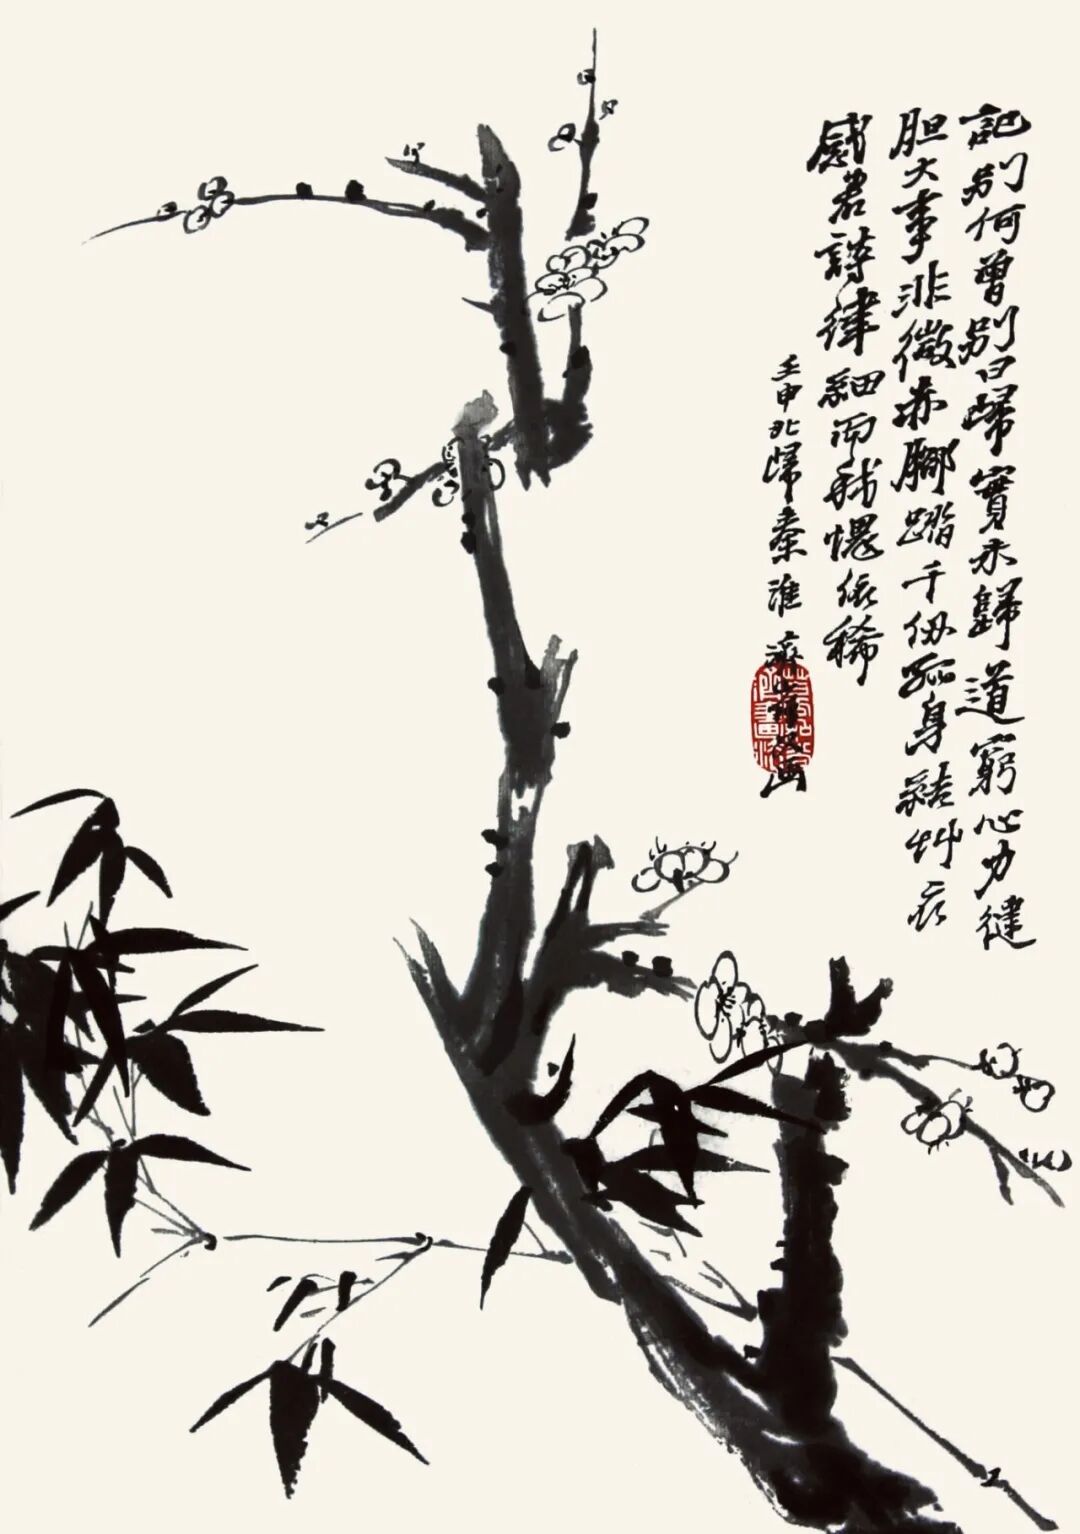 記別何曾別曰歸實未歸道窮心力健
胆大事非微赤腳踏千仞孤身結艸衣
感君詩律細而我愧依稀
壬申北歸秦淮濟山